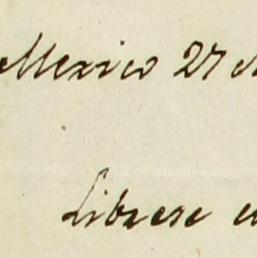 Mexico 27
Librese